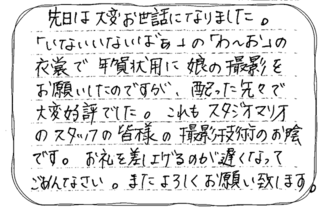 先日は大変お世話になりました。
「いないいないばぁ」の「わ〜お」の
衣裳で年賀状用に娘の撮影を
お願いしたのですが、配った先々で
大変好評でした。これもスタジオマリオ
のスタッフの皆様の撮影技術のお陰
です。お礼を差し上げるのが遅くなって
ごめんなさい。またよろしくお願い致します。